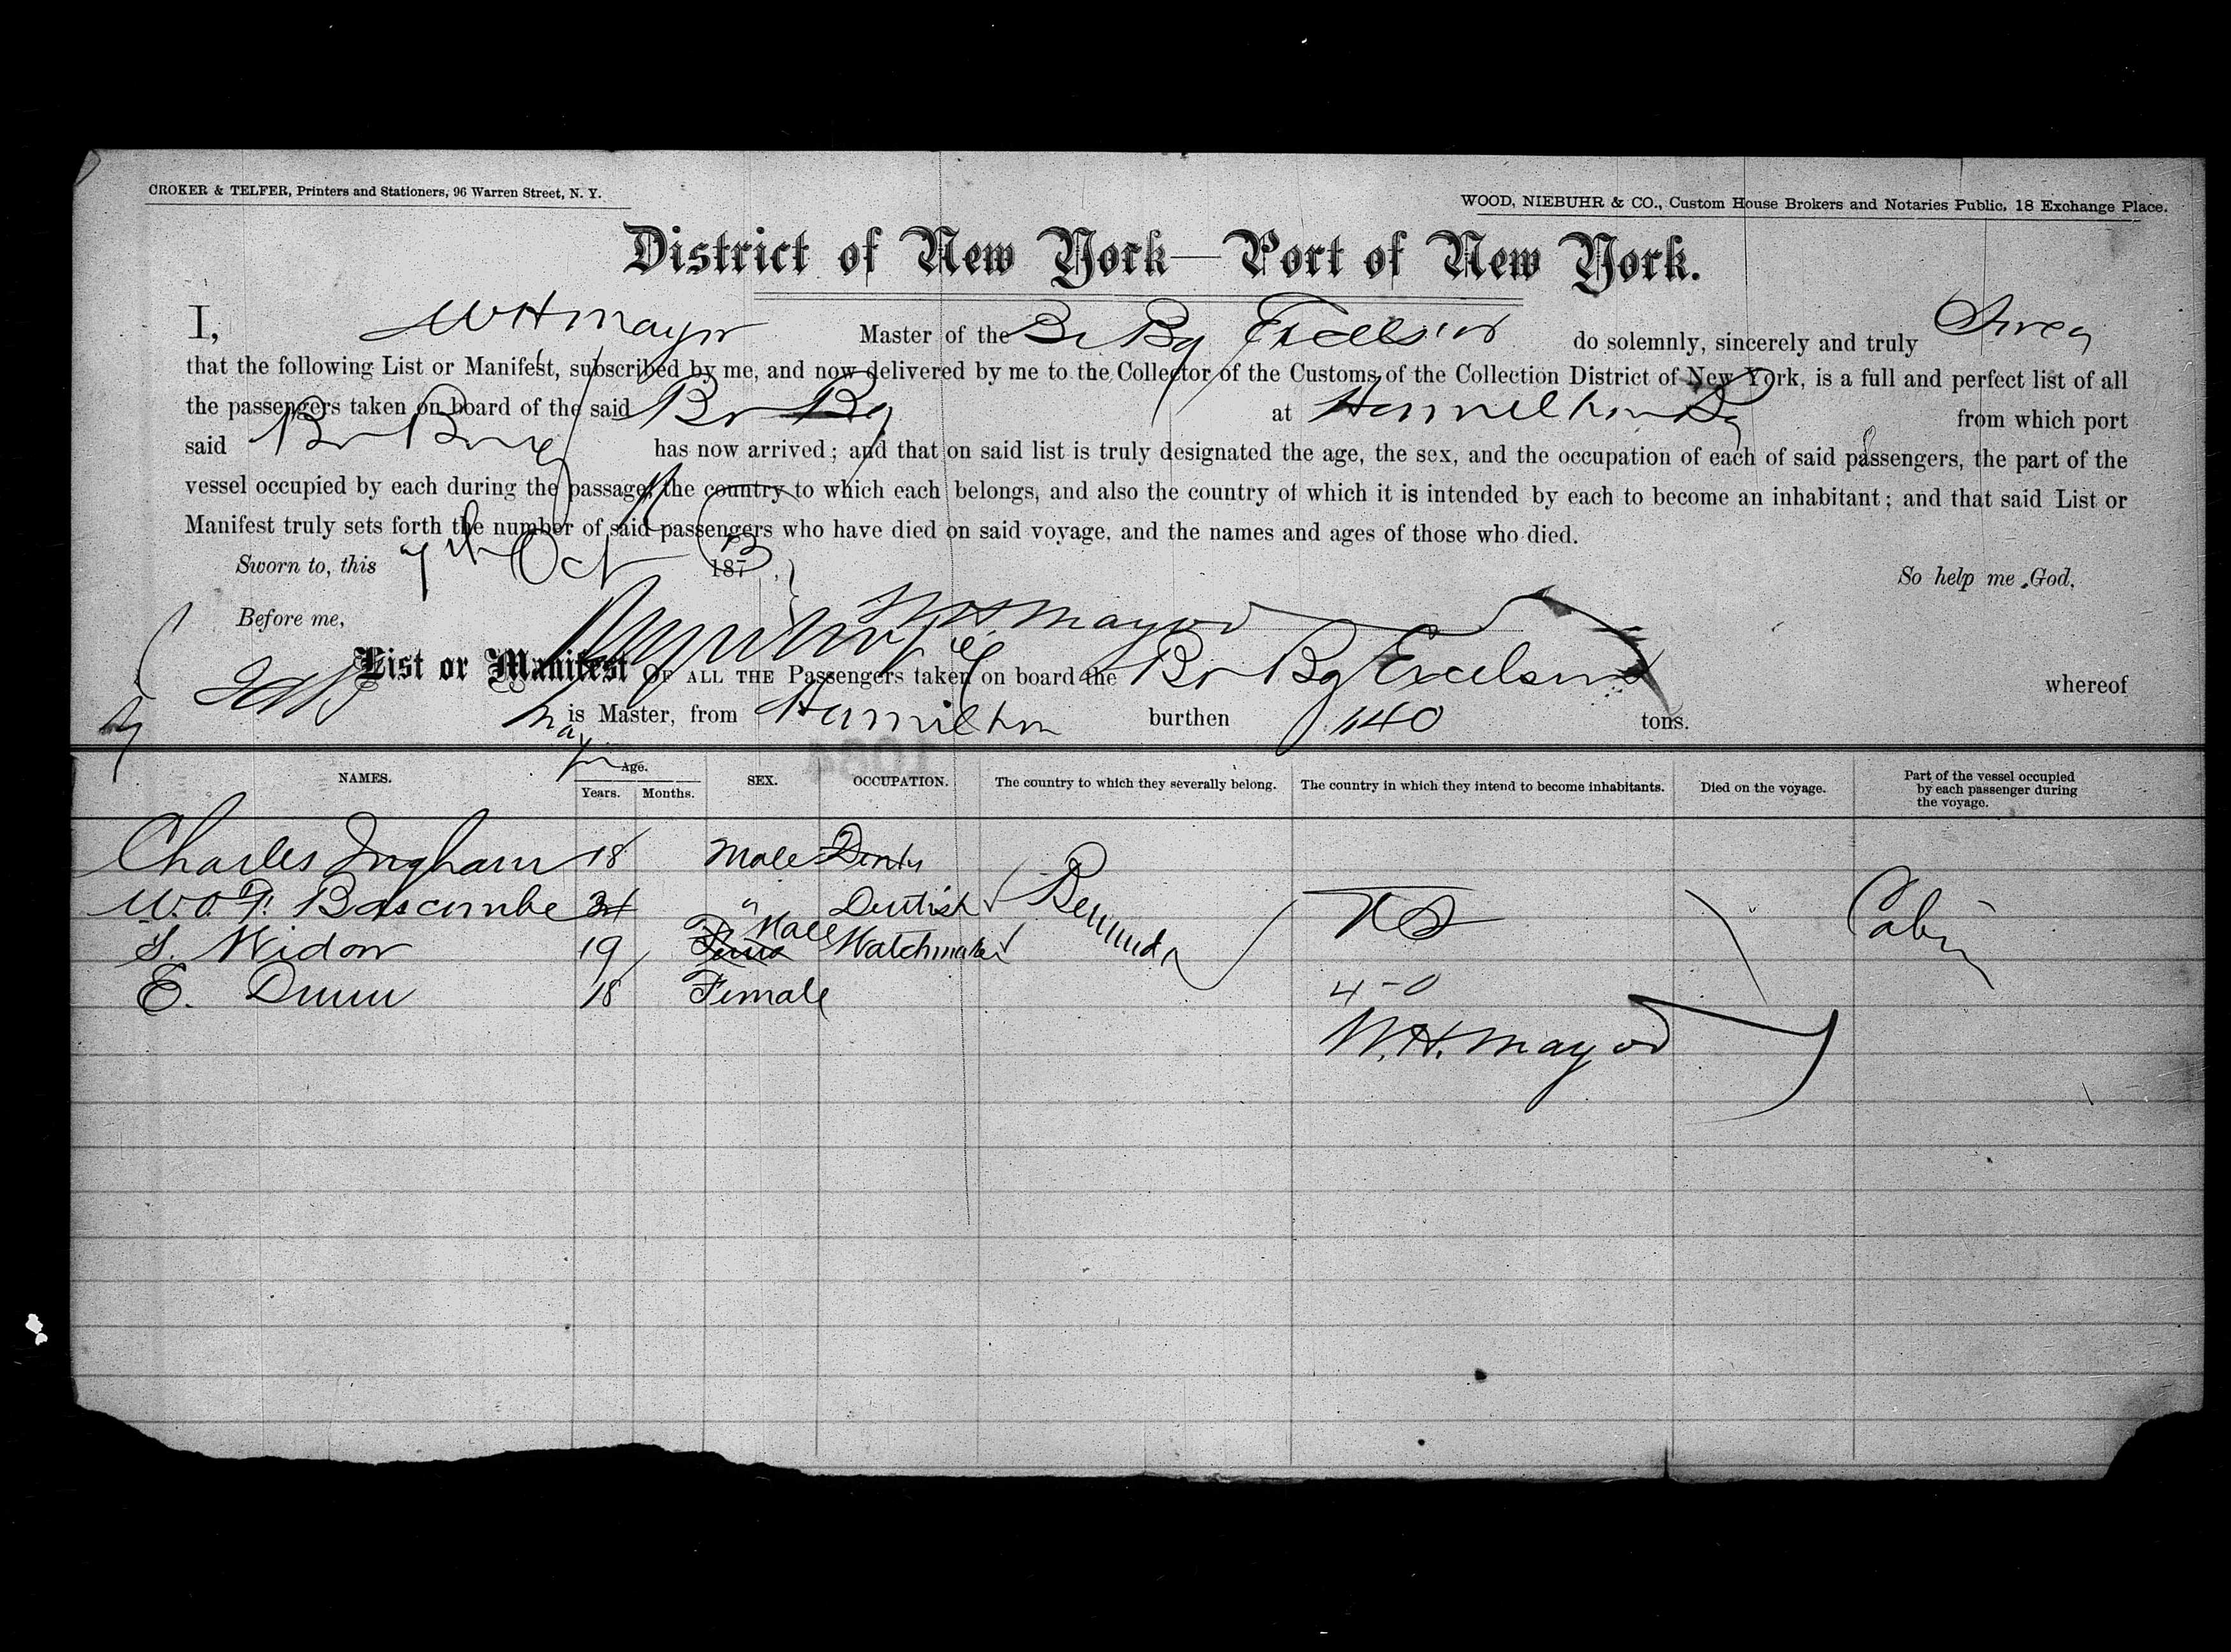 CROKER & TELFER, Printers and Stationers, 96 Warren Street, N. Y.
WOOD, NIEBUHR & CO., Custom House Brokers and Notaries Public, 18 Exchange Place.
District of New York—Port of New York.
I, W H Mayor Master of the Br Bg Excelsior do solemnly, sincerely and truly Swear
that the following List or Manifest, subscribed by me, and now delivered by me to the Collector of the Customs of the Collection District of New York, is a full and perfect list of all
the passengers taken on board of the said Br Bg at Hamilton from which port
said Br Brig has now arrived; and that on said list is truly designated the age, the sex, and the occupation of each of said passengers, the part of the
vessel occupied by each during the passage, the country to which each belongs, and also the country of which it is intended by each to become an inhabitant; and that said List or
Manifest truly sets forth the number of said passengers who have died on said voyage, and the names and ages of those who died.
Sworn to, this 7th Oct 187 So help me God,
Before me, W H Mayor
List or Manifest OF ALL THE Passengers taken on board the Br Bg Excelsior whereof
is Master, from Hamilton burthen 140 tons.
NAMES. Age. Years. Months. SEX. OCCUPATION. The country to which they severally belong. The country in which they intend to become inhabitants. Died on the voyage. Part of the vessel occupied by each passenger during the voyage.
Charles Ingham 18 Male
W. O. F. Bascombe " Dentist Bermuda U S Cabin
S. Widon 19 Male Watchmaker
E. Dunn 18 Female 4-0
W. H. Mayor